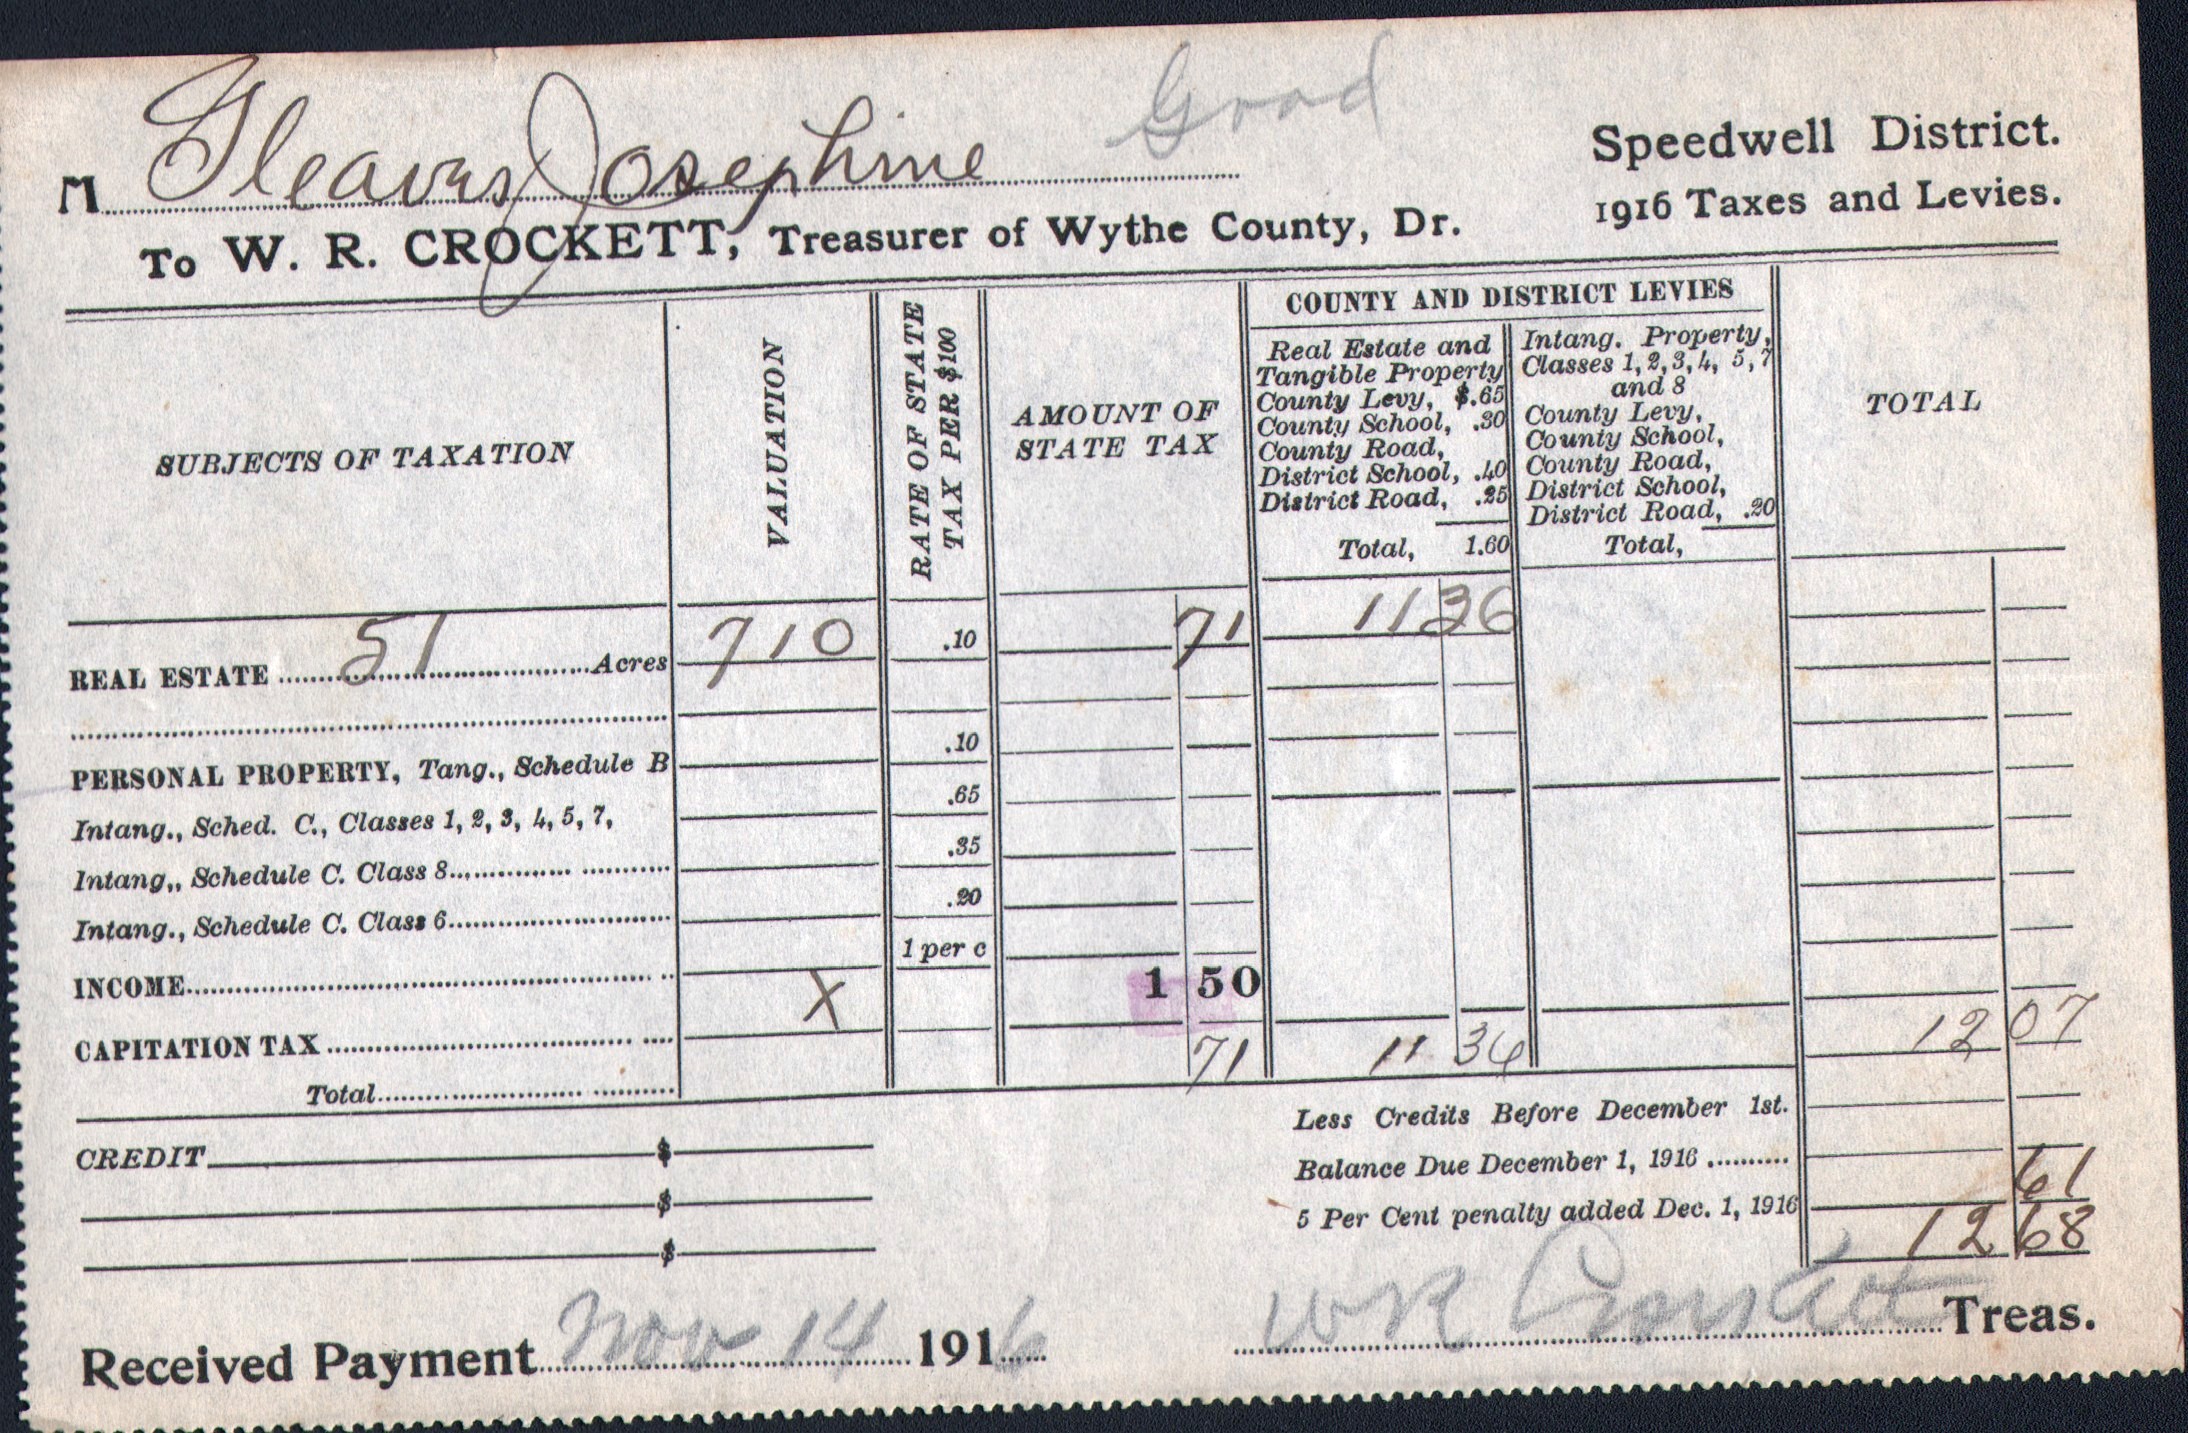 Good
M Gleaves Josephine
Speedwell District.
To W. R. CROCKETT, Treasurer of Wythe County, Dr.
1916 Taxes and Levies.
SUBJECTS OF TAXATION
VALUATION
RATE OF STATE TAX PER $100
AMOUNT OF STATE TAX
COUNTY AND DISTRICT LEVIES
Real Estate and
Tangible Property
County Levy, $.65
County School, .30
County Road,
District School, .40
District Road, .25
Total, 1.60
Intang. Property,
Classes 1, 2, 3, 4, 5, 7
and 8
County Levy,
County School,
County Road,
District School,
District Road, .20
Total,
TOTAL
REAL ESTATE 51 Acres 710 .10 71 11 36
PERSONAL PROPERTY, Tang., Schedule B .10
Intang., Sched. C., Classes 1, 2, 3, 4, 5, 7, .65
Intang,, Schedule C. Class 8 .35
Intang., Schedule C. Class 6 .20
INCOME 1 per c
CAPITATION TAX X 1 50
Total 71 11 36 12 07
Less Credits Before December 1st.
CREDIT $
Balance Due December 1, 1916
$
5 Per Cent penalty added Dec. 1, 1916 61
$
12 68
Received Payment Nov 14 1916 W R Crockett Treas.